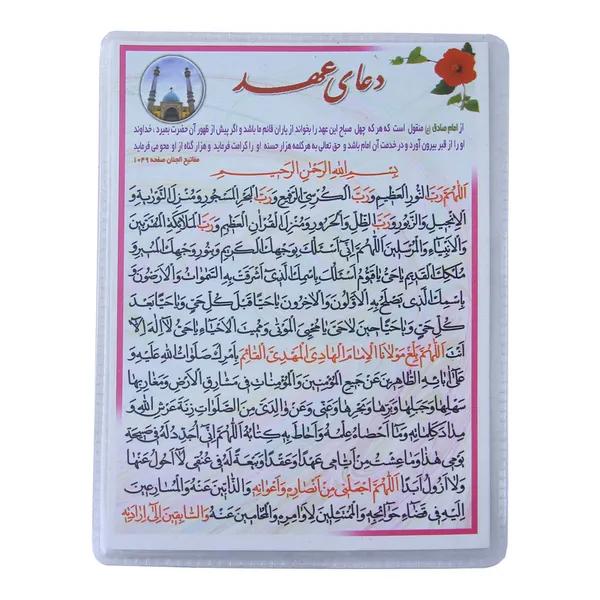 دعای عهد
از امام صادق (ع) منقول است که هر که چهل صباح این عهد را بخواند از یاران قائم ما باشد و اگر پیش از ظهور آن حضرت بمیرد ، خداوند
او را از قبر بیرون آورد و در خدمت آن امام باشد و حق تعالی به هر کلمه هزار حسنه او را کرامت فرماید و هزار گناه از او محو می فرماید
مفاتیح الجنان صفحه ۱۰۴۹
بِسْمِ اللهِ الرَّحْمٰنِ الرَّحیمِ
اَللّهُمَّ رَبَّ النُّورِ الْعَظیمِ وَ رَبَّ الْکُرْسِیِّ الرَّفیعِ وَ رَبَّ الْبَحْرِ الْمَسْجُورِ وَ مُنْزِلَ التَّوْریةِ وَ
الْاِنْجیلِ وَ الزَّبُورِ وَ رَبَّ الظِّلِّ وَ الْحَرُورِ وَ مُنْزِلَ الْقُرْانِ الْعَظیمِ وَ رَبَّ الْمَلائِکَةِ الْمُقَرَّبینَ
وَ الْاَنْبِیاءِ وَ الْمُرْسَلینَ اَللّهُمَّ اِنّی اَسْئَلُکَ بِوَجْهِکَ الْکَریمِ وَ بِنُورِ وَجْهِکَ الْمُنیرِ وَ
مُلْکِکَ الْقَدیمِ یا حَیُّ یا قَیُّومُ اَسْئَلُکَ بِاسْمِکَ الَّذی اَشْرَقَتْ بِهِ السَّمٰواتُ وَ الْاَرَضُونَ وَ
بِاسْمِکَ الَّذی یَصْلَحُ بِهِ الْاَوَّلُونَ وَ الْاخِرُونَ یا حَیّاً قَبْلَ کُلِّ حَیٍّ وَ یا حَیّاً بَعْدَ
کُلِّ حَیٍّ وَ یا حَیّاً حینَ لا حَیَّ یا مُحْیِیَ الْمَوْتی وَ مُمیتَ الْاَحْیاءِ یا حَیُّ لا اِلهَ اِلّا
اَنْتَ اَللّهُمَّ بَلِّغْ مَوْلانَا الْاِمامَ الْهادِیَ الْمَهْدِیَّ الْقائِمَ بِاَمْرِکَ صَلَواتُ اللهِ عَلَیْهِ وَ
عَلی ابائِهِ الطّاهِرینَ عَنْ جَمیعِ الْمُؤْمِنینَ وَ الْمُؤْمِناتِ فی مَشارِقِ الْاَرْضِ وَ مَغارِبِها
سَهْلِها وَ جَبَلِها وَ بَرِّها وَ بَحْرِها وَ عَنّی وَ عَنْ والِدَیَّ مِنَ الصَّلَواتِ زِنَةَ عَرْشِ اللهِ وَ
مِدادَ کَلِماتِهِ وَ ما اَحْصاهُ عِلْمُهُ وَ اَحاطَ بِهِ کِتابُهُ اَللّهُمَّ اِنّی اُجَدِّدُ لَهُ فی صَبیحَةِ
یَوْمی هذا وَ ما عِشْتُ مِنْ اَیّامی عَهْداً وَ عَقْداً وَ بَیْعَةً لَهُ فی عُنُقی لا اَحُولُ عَنْها
وَ لا اَزُولُ اَبَداً اَللّهُمَّ اجْعَلْنی مِنْ اَنْصارِهِ وَ اَعْوانِهِ وَ الذّابّینَ عَنْهُ وَ الْمُسارِعینَ
اِلَیْهِ فی قَضاءِ حَوائِجِهِ وَ الْمُمْتَثِلینَ لِاَوامِرِهِ وَ الْمُحامینَ عَنْهُ وَ السّابِقینَ اِلی اِرادَتِهِ